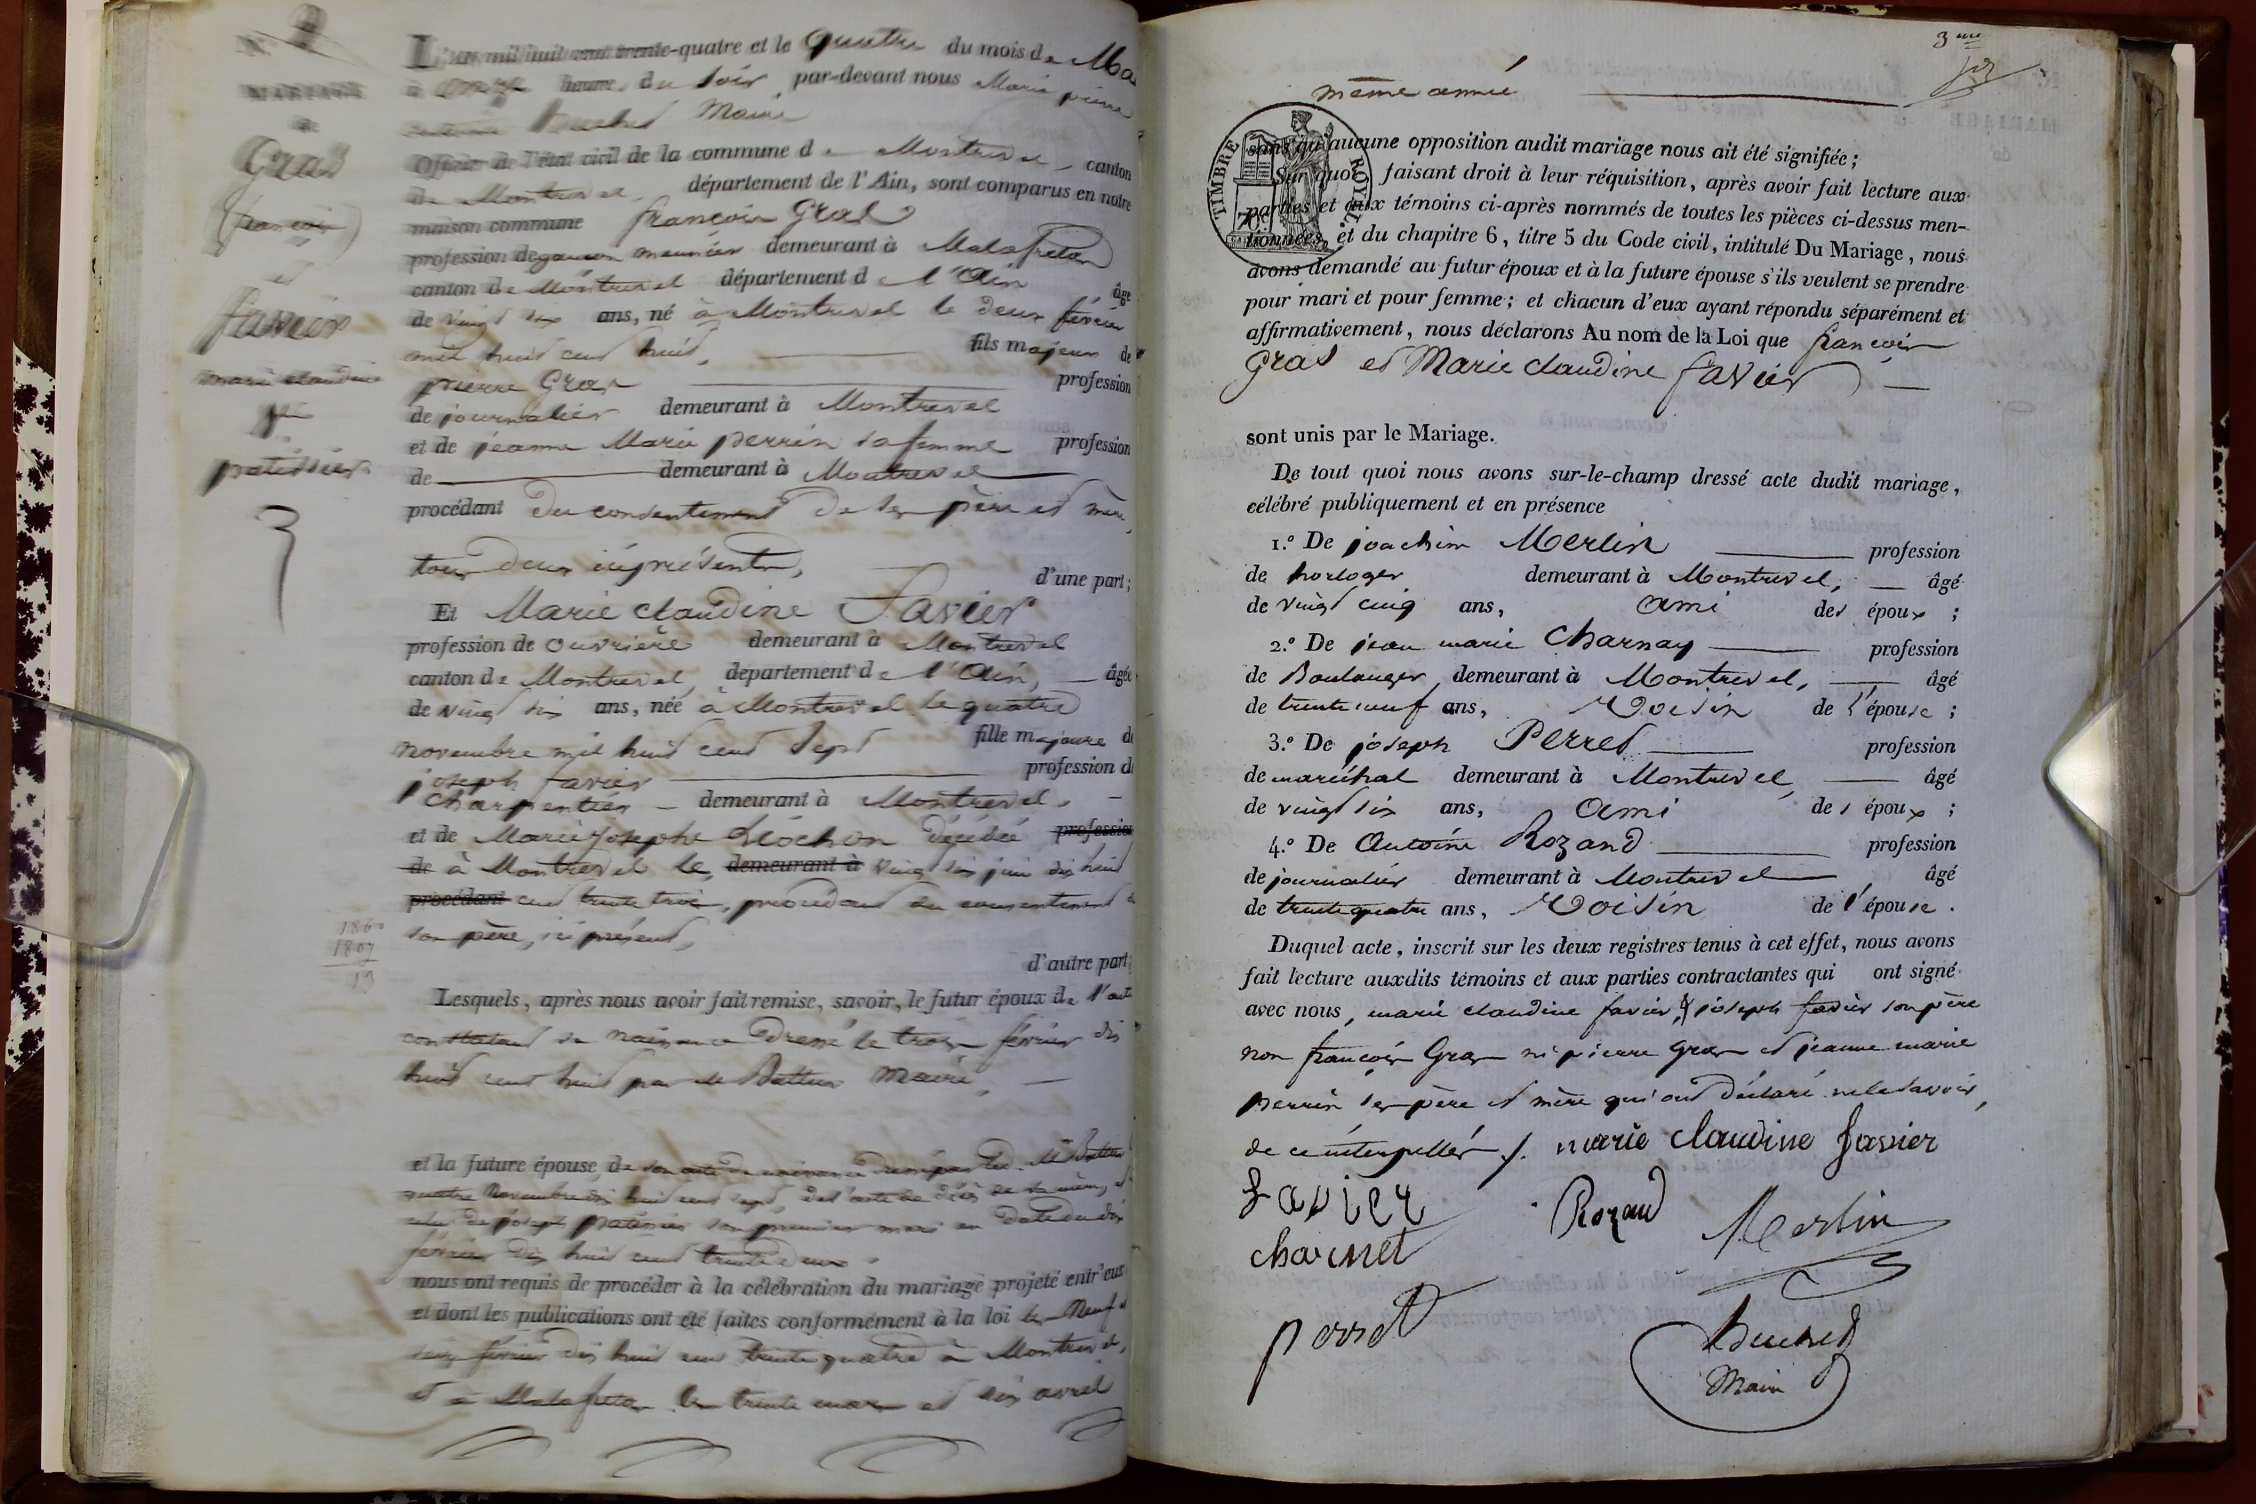 N.º
MARIAGE
de
Gras
(françois)
et
favier
marie claudine
Ve
patissier
3
1860
1807
L'an mil huit cent trente-quatre et le quatre du mois de Ma
à onze heures du soir par-devant nous Marie pierre
Buchet Maire
Officier de l'état civil de la commune de Montrevel, canton
de Montrevel, département de l'Ain, sont comparus en notre
maison commune françois Gras
profession de garcon meunier demeurant à Malafretaz
canton de Montrevel département de l'Ain âgé
de vingt six ans, né à Montrevel le deux février
mil huit cent huit, fils majeur de
pierre Gras profession
de journalier demeurant à Montrevel
et de jeanne Marie perrin sa femme profession
de demeurant à Montrevel
procédant du consentement de ses père et mère,
tous deux ici présents, d'une part;
Et Marie claudine Favier
profession de ouvrière demeurant à Montrevel
canton de Montrevel, département de l'Ain, âgée
de vingt six ans, née à Montrevel le quatre
novembre mil huit cent sept fille majeure de
joseph favier profession de
charpentier demeurant à Montrevel,
et de Marie josephe Léochon décédée profession
de à Montrevel le demeurant à vingt six juin dix huit
procédant cent trente trois, procédant du consentement de
son père, ici présent,
d'autre part;
Lesquels, après nous avoir fait remise, savoir, le futur époux de l'acte
constatant sa naissance dressé le trois février dix
huit cent huit par de Batteur Maire,
et la future épouse, de son acte de naissance
quatre Novembre dix huit cent sept, de l'acte de décès de sa mère, et
celui de joseph patissier son premier mari en date du dix
février dix huit cent trente deux.
nous ont requis de procéder à la célébration du mariage projeté entr'eux
et dont les publications ont été faites conformément à la loi les Neuf et
seize février dix huit cent trente quatre à Montrevel,
et à Malafretaz les trente mars et six avril
3me
même année
TIMBRE ROYAL
sans qu'aucune opposition audit mariage nous ait été signifiée;
Sur quoi, faisant droit à leur réquisition, après avoir fait lecture aux
parties et aux témoins ci-après nommés de toutes les pièces ci-dessus men-
tionnées, et du chapitre 6, titre 5 du Code civil, intitulé Du Mariage, nous
avons demandé au futur époux et à la future épouse s'ils veulent se prendre
pour mari et pour femme; et chacun d'eux ayant répondu séparément et
affirmativement, nous déclarons Au nom de la Loi que françois
Gras et Marie claudine favier
sont unis par le Mariage.
De tout quoi nous avons sur-le-champ dressé acte dudit mariage,
célébré publiquement et en présence
1.º De joachim Merlin profession
de horloger demeurant à Montrevel, âgé
de vingt cinq ans, ami des époux;
2.º De jean marie Charnay profession
de Boulanger, demeurant à Montrevel, âgé
de trente neuf ans, Voisin de l'épouse;
3.º De joseph Perret profession
de maréchal demeurant à Montrevel, âgé
de vingt six ans, ami des époux;
4.º De Antoine Rozand profession
de journalier demeurant à Montrevel âgé
de trente quatre ans, Voisin de l'épouse.
Duquel acte, inscrit sur les deux registres tenus à cet effet, nous avons
fait lecture auxdits témoins et aux parties contractantes qui ont signé
avec nous, marie claudine favier, & joseph favier son père
non françois Gras ni pierre gras et jeanne marie
perrin ses père et mère qui ont déclaré ne le savoir,
de ce interpellés ./. marie claudine favier
favier Rozand Merlin
charnet
perret
Buchet
Maire